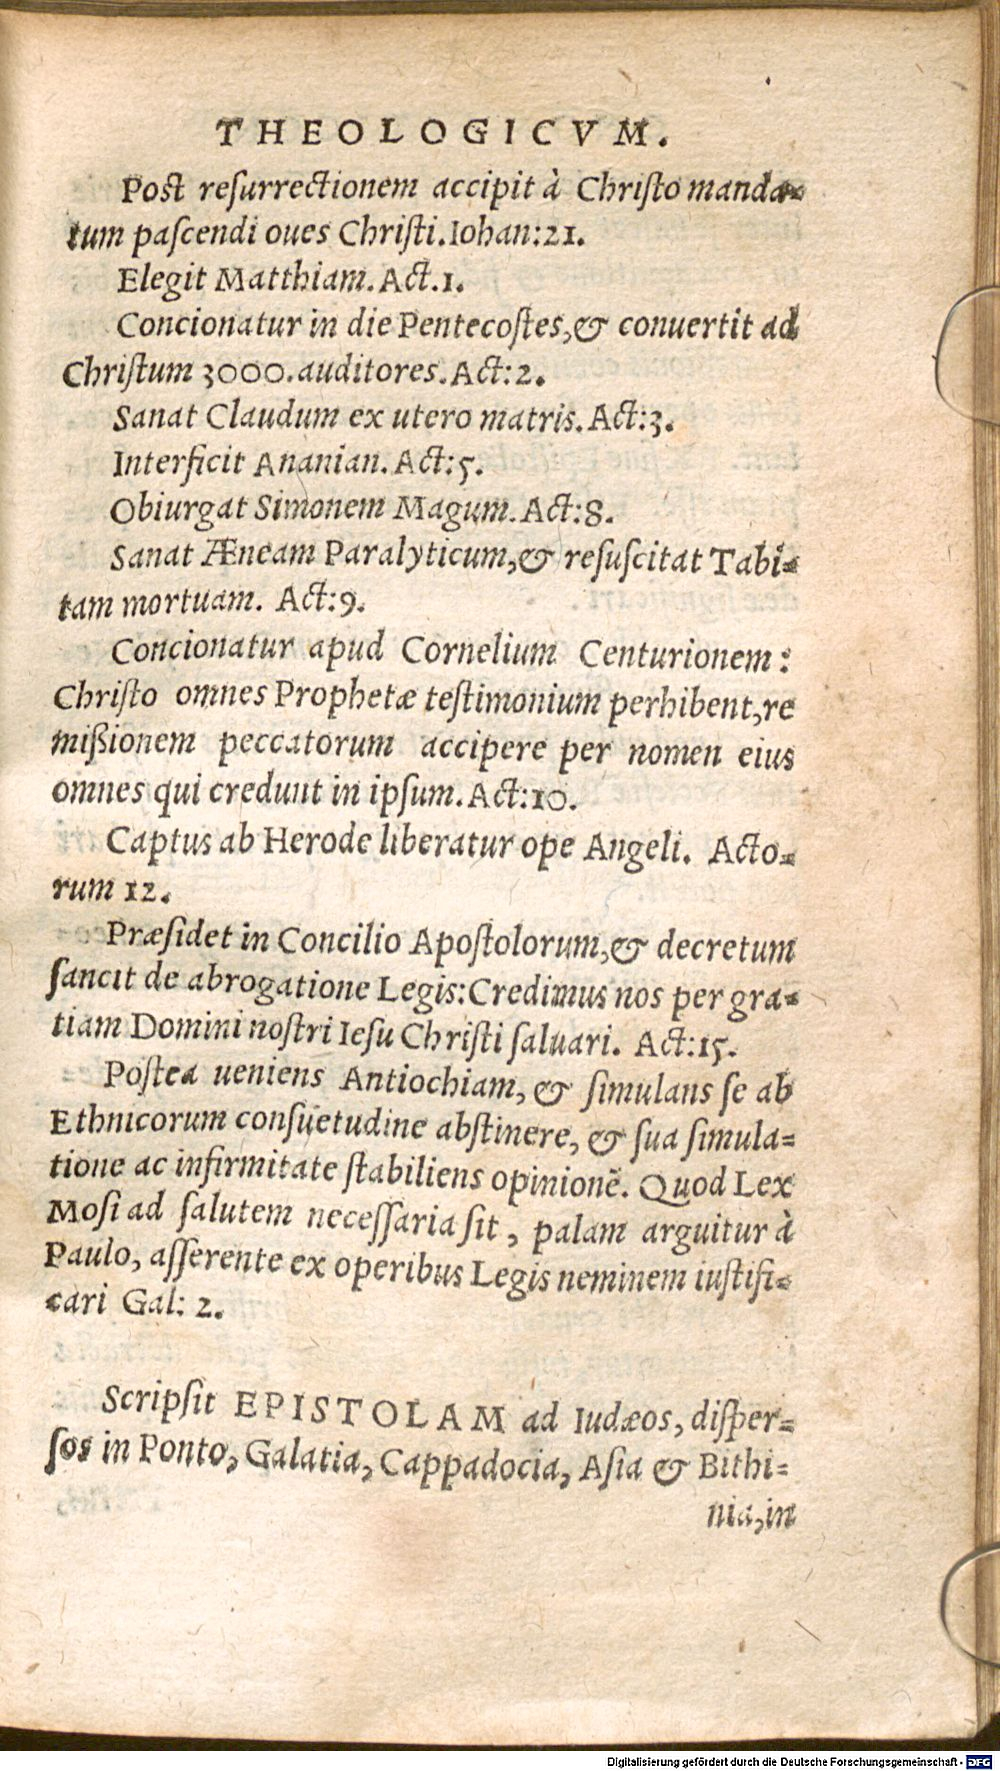 THEOLOGICVM.
Post reſurrectionem accipit à Chriſto manda-
tum paſcendi oues Chriſti. Iohan: 21.
Elegit Matthiam. Act. 1.
Concionatur in die Pentecoſtes, & conuertit ad
Chriſtum 3000. auditores. Act: 2.
Sanat Claudum ex utero matris. Act: 3.
Interficit Ananian. Act: 5.
Obiurgat Simonem Magum. Act: 8.
Sanat Æneam Paralyticum, & reſuſcitat Tabi-
tam mortuam. Act: 9.
Concionatur apud Cornelium Centurionem:
Chriſto omnes Prophetæ teſtimonium perhibent, re
mißionem peccatorum accipere per nomen eius
omnes qui credunt in ipſum. Act: 10.
Captus ab Herode liberatur ope Angeli. Acto-
rum 12.
Præſidet in Concilio Apoſtolorum, & decretum
ſancit de abrogatione Legis: Credimus nos per gra-
tiam Domini noſtri Ieſu Chriſti ſaluari. Act: 15.
Poſtea ueniens Antiochiam, & ſimulans ſe ab
Ethnicorum conſuetudine abſtinere, & ſua ſimula-
tione ac infirmitate ſtabiliens opinionẽ. Quod Lex
Moſi ad ſalutem neceſſaria ſit, palam arguitur à
Paulo, aſſerente ex operibus Legis neminem iuſtifi-
cari Gal: 2.
Scripſit EPISTOLAM ad Iudæos, diſper-
ſos in Ponto, Galatia, Cappadocia, Aſia & Bithi-
nia, in
Digitalisierung gefördert durch die Deutsche Forschungsgemeinschaft - DFG